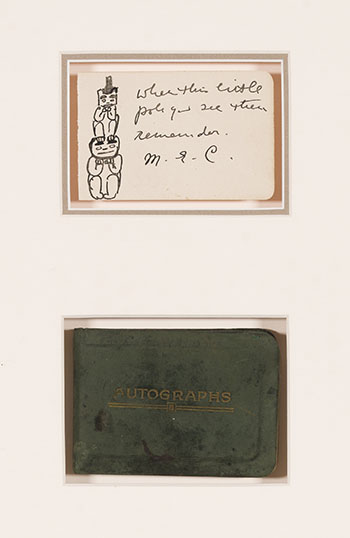 When this little
pole you see then
remember.
M. E. C.
AUTOGRAPHS